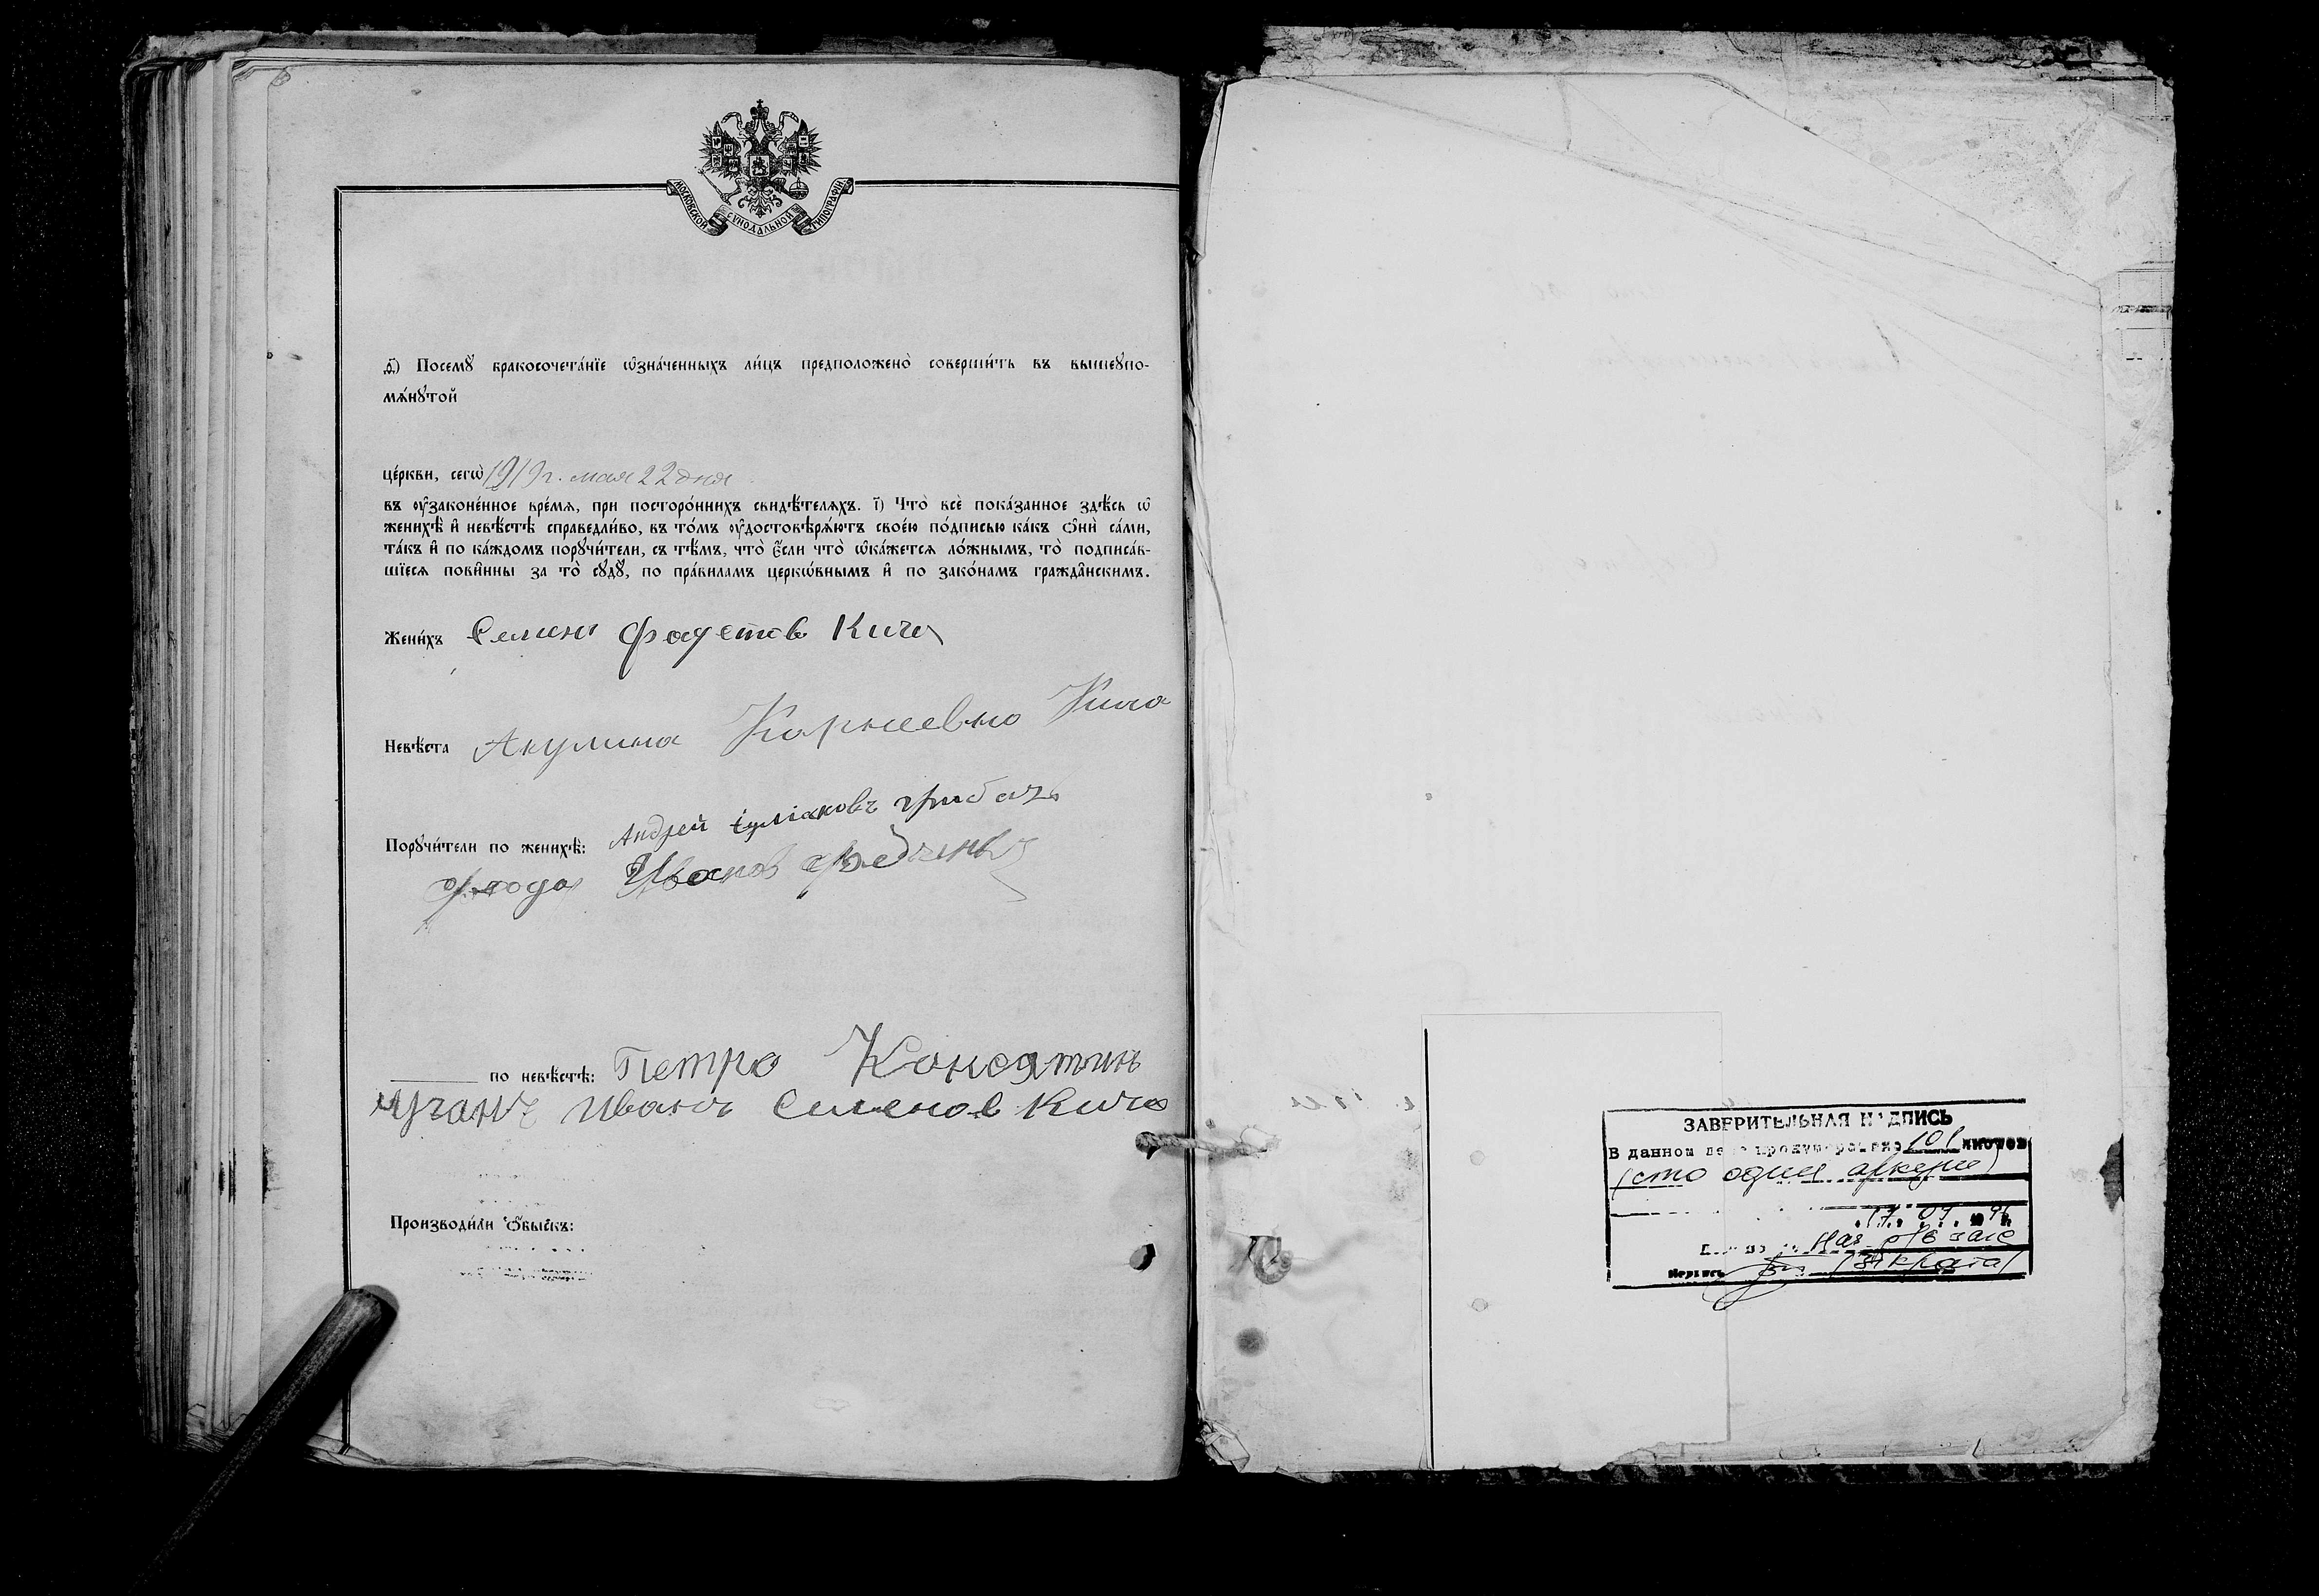 МОСКОВСКОЙ СѴНОДАЛЬНОЙ ТИПОГРАФІИ
д҃) Посемꙋ̀ бракосочета́нїе ѡ҆зна́ченныхъ ли́цъ предположено̀ соверши́ть въ вышеꙋпо-
мѧ́нꙋтой
це́ркви, сегѡ̀ 1919 г. мая 22 дня
въ ᲂу҆законе́нное вре́мѧ, при посторо́ннихъ свидѣ́телѧхъ. і҃) Что̀ всѐ пока́занное здѣ́сь ѡ҆
женихѣ̀ и҆ невѣ́стѣ справедли́во, въ то́мъ ᲂу҆достовѣрѧ́ютъ свое́ю по́дписью ка́къ ѻ҆нѝ са́ми,
та́къ и҆ по ка́ждомъ порꙋчи́тели, съ тѣ́мъ, что̀ є҆́сли что̀ ѡ҆ка́жетсѧ ло́жнымъ, то̀ подписа́в-
шїесѧ пови́нны за то̀ сꙋдꙋ̀, по пра́виламъ церкѡ́внымъ и҆ по зако́намъ гражда́нскимъ.
Жени́хъ Семен Фадетов Кича
Невѣ́ста Акулина Корнеевна Кича
Порꙋчи́тели по женихѣ̀: Андрей
Иванов
по невѣ́стѣ: Петро
Иванъ Семенов Кича
Производи́ли ѻ҆́быскъ:
ЗАВЕРИТЕЛЬНАЯ НАДПИСЬ
В данном деле пронумеровано 101 листов
(сто один аркуш)
17. 09.